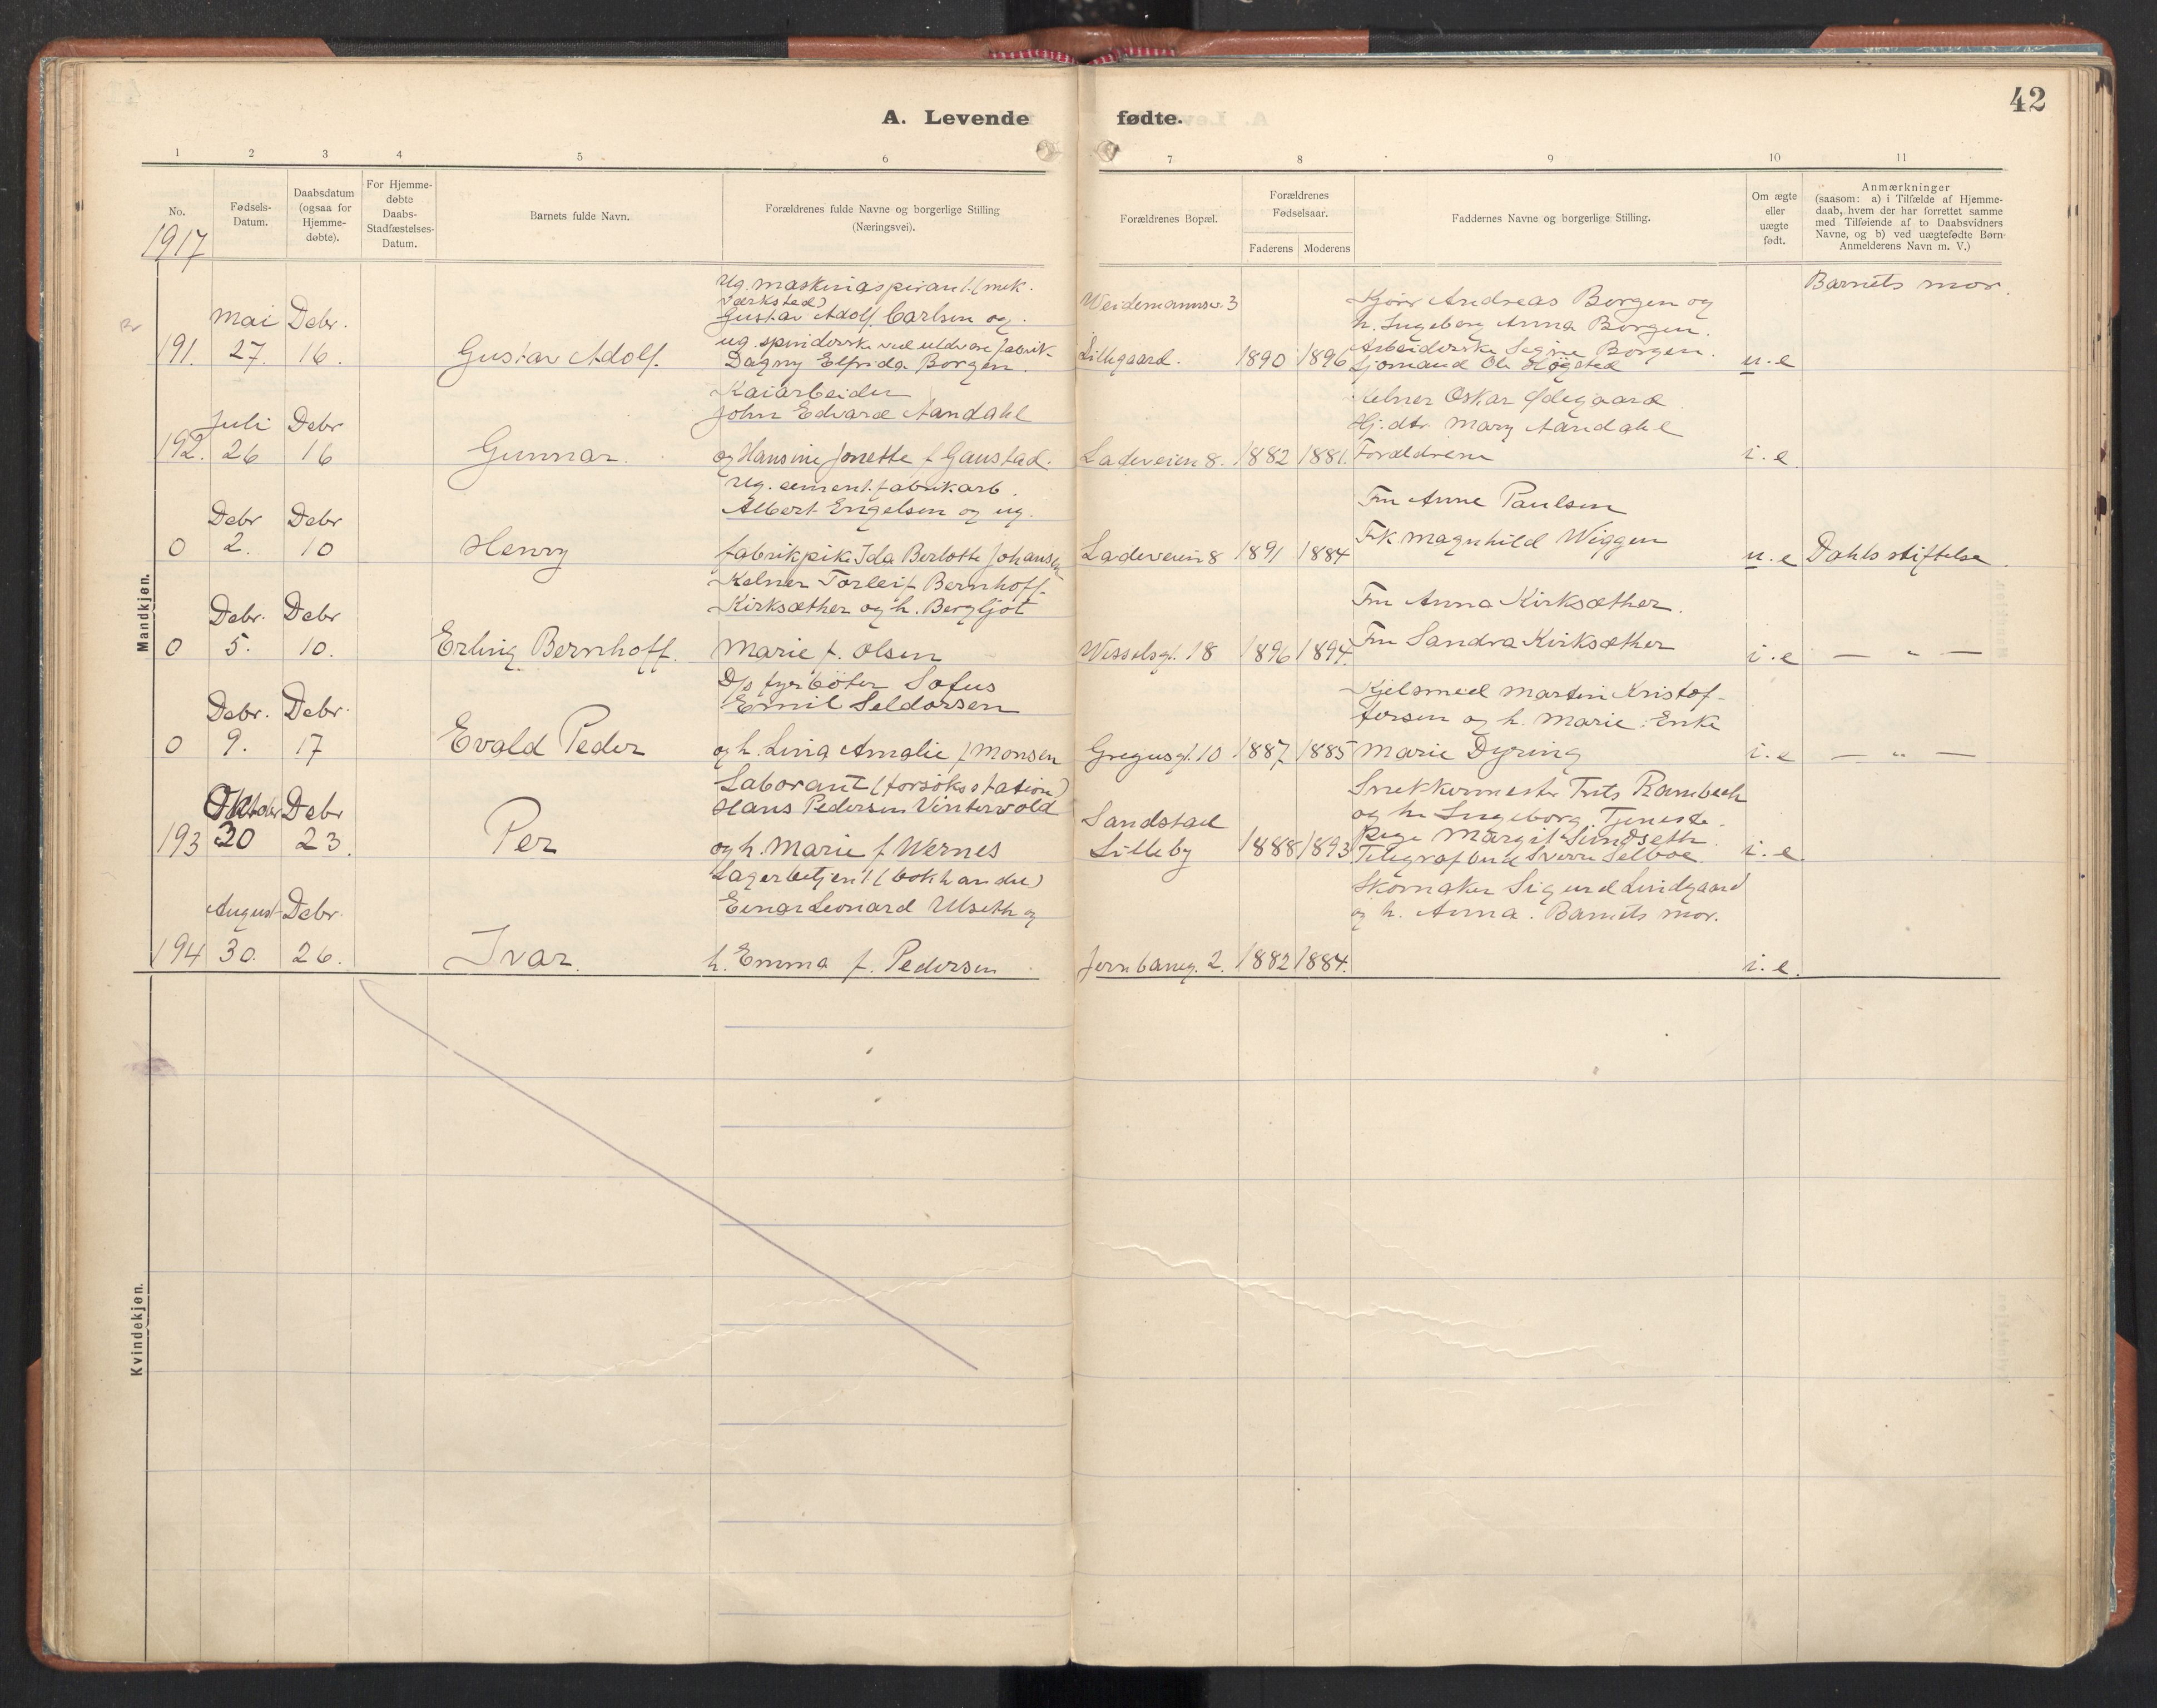 42
A. Levende fødte.
1 2 3 4 5 6 7 8 9 10 11
No.
Fødsels-
Datum.
Daabsdatum
(ogsaa for
Hjemme-
døbte).
For Hjemme-
døbte
Daabs-
Stadfæstelses-
Datum.
Barnets fulde Navn.
Forældrenes fulde Navne og borgerlige Stilling
(Næringsvei).
Forældrenes Bopæl.
Forældrenes
Fødselsaar.
Faderens Moderens
Faddernes Navne og borgerlige Stilling.
Om ægte
eller
uægte
født.
Anmærkninger
(saasom: a) i Tilfælde af Hjemme-
daab, hvem der har forrettet samme
med Tilføiende af to Daabsvidners
Navne, og b) ved uægtefødte Børn
Anmelderens Navn m. V.)
1917
Mandkjøn.
191. Mai 27. Debr. 16.
Gustav Adolf.
Ug. maskinaspirant. (mek.
værksted)
Gustav Adolf Carlsen og
ug. spinderske ved uldvarefabrik
Dagny Elfrida Borgen.
Weidemannsv. 3
Lillegaard.
1890 1896
Kjører Andreas Borgen og
h. Ingeborg Anna Borgen.
Arbeiderske Signe Borgen.
Sjømand Ole Høgsted
u.e
Barnets mor.
192. Juli 26 Debr 16
Gunnar.
Kaiarbeider
John Edvard Aandahl
og Hansine Jonette f Gaustad.
Ladeveien 8. 1882 1881.
Kelner Oskar Ødegaard
Hj: dtr. Mary Aandahl
Forældrene
i.e
0 Debr 2. Debr 10
Henry
Ug. cement.fabrikarb.
Albert Engelsen og ug.
fabrikpike Ida Berlotte Johansen
Ladeveien 8 1891 1884
Fru Anne Paulsen
Frk Magnhild Wiggen
u.e Dahls stiftelse.
0 Debr. 5. Debr 10.
Erling Bernhoff.
Kelner Torleif Bernhoff
Kirksæther og h. Bergljot
Marie f. Olsen
Wesselsgt. 18 1896 1894.
Fru Anna Kirksæther.
Fru Sandra Kirksæther
i.e — " —
0 Debr. 9. Debr. 17
Evald Peder
D/s fyrbøter Sofus
Emil Seldorsen
og h. Lina Amalie f Monsen
Gregusgt. 10 1887 1885
Kjelsmed Martin Kristof-
fersen og h. Marie. Enke
Marie Dyring
i.e — " —
193 Oktober 30 Debr 23.
Per
Laborant (forsøksstation)
Hans Pedersen Vintervold
og h. Marie f Wernes
Sandstad
Lilleby
1888 1893
Snekkermester Frits Rambech
og h. Ingeborg. Tjeneste-
pige Margit Sundseth
Telegrafbud Sverre Selboe.
i.e.
194 August 30. Debr. 26.
Ivar.
Lagerbetjent (bokhandel)
Einar Leonard Ulseth og
h. Emma f. Pedersen
Jernbaneg. 2. 1882 1884.
Skomaker Sigurd Lindgaard
og h. Anna. Barnets mor.
i.e.
Kvindekjøn.